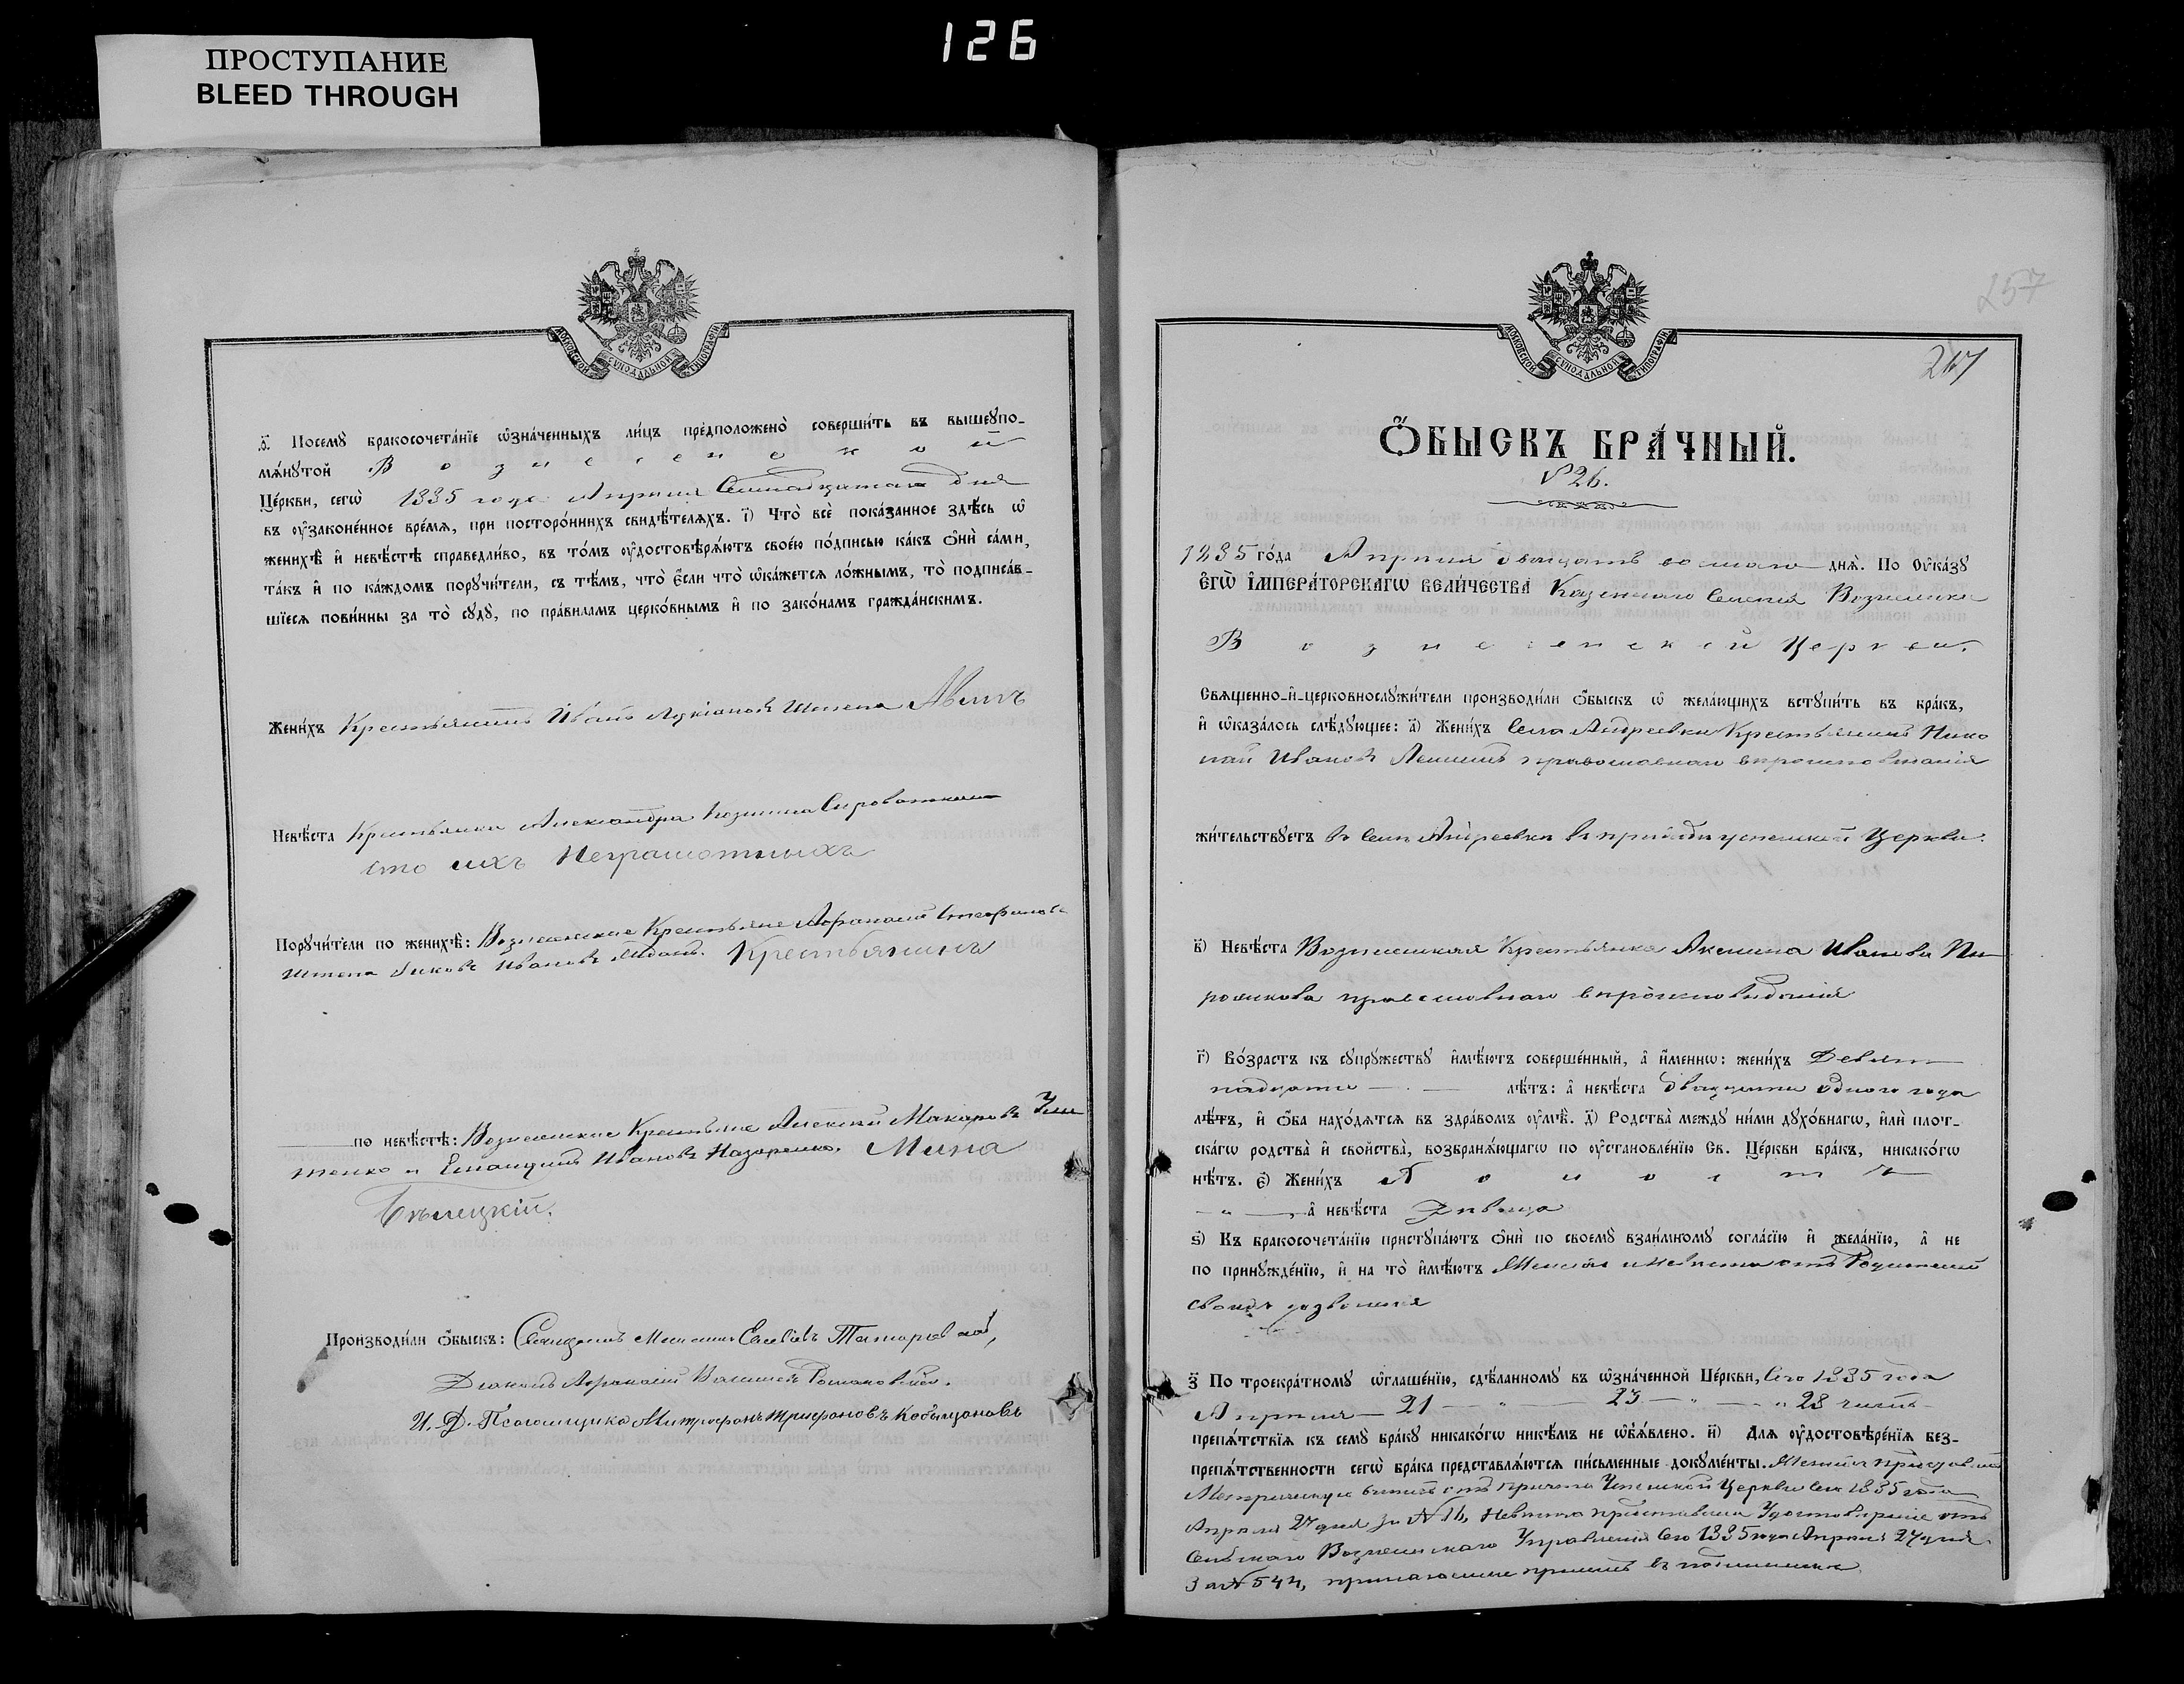 126
ПРОСТУПАНИЕ
BLEED THROUGH
МОСКОВСКОЙ СѴНОДАЛЬНОЙ ТИПОГРАФІИ
ѳ҃. Посемꙋ̀ бракосочета́нїе ѡ҆зна́ченныхъ ли́цъ предположено̀ соверши́ть въ вышеꙋпо-
мѧ́нꙋтой Вознесенской
Це́ркви, сегѡ̀ 1885 года Апрѣля Семнадцатаго дня
въ ᲂу҆законе́нное вре́мѧ, при посторо́ннихъ свидѣ́телѧхъ. і҃) Что̀ всѐ пока́занное здѣ́сь ѡ҆
женихѣ̀ и҆ невѣ́стѣ справедли́во, въ то́мъ ᲂу҆достовѣрѧ́ютъ свое́ю по́дписью ка́къ ѻ҆нѝ са́ми,
та́къ и҆ по ка́ждомъ порꙋчи́тели, съ тѣ́мъ, что̀ є҆́сли что̀ ѡ҆ка́жетсѧ ло́жнымъ, то̀ подписа́в-
шїесѧ пови́нны за то̀ сꙋдꙋ̀, по пра́виламъ церко́внымъ и҆ по зако́намъ гражда́нскимъ.
Жени́хъ Крестьянинъ Иванъ Лукіановъ Штепа
Невѣ́ста Крестьянка Александра Козмина
ихъ Неграмотныхъ
Порꙋчи́тели по женихѣ̀: Вознесенские Крестьяне Афанасій Стефановъ
Штепа Иванов Крестьянинъ
по невѣ́стѣ: Вознесенские Крестьяне Алексѣй Макаровъ
тенко и Иванов Назаренко. Мина
Бѣлецкій.
Производи́ли ѻ҆́быскъ: Священникъ Татаровскій,
Діаконъ Афанасій Василіевъ Романовскій.
И. Д. Псаломщика Митрофанъ Трифоновъ Кобызановъ
257
МОСКОВСКОЙ СѴНОДАЛЬНОЙ ТИПОГРАФІИ
Ѻ҆́БЫСКЪ БРА́ЧНЫЙ.
№ 26.
1885 го́да Апрѣля двадцать осьмаго днѧ̀. По Оу҆ка́зꙋ
Є҆ГѠ̀ И҆МПЕРА́ТОРСКАГѠ ВЕЛИ́ЧЕСТВА Казеннаго Селенія Вознесенки
Вознесенской Церкви.
Свѧще́нно-и҆-церковнослꙋжи́тели производи́ли ѻ҆́быскъ ѡ҆ жела́ющихъ встꙋпи́ть въ бра́къ,
и҆ ѡ҆каза́лось слѣ́дꙋющее: а҃) Жени́хъ Села Андреевки Крестьянинъ Нико
лай Ивановъ православнаго вѣроисповѣданія
жи́тельствꙋетъ въ Селѣ Андреевкѣ въ приходѣ Успенской Церкви.
в҃) Невѣ́ста Вознесенская Крестьянка Акелина Иванова Пи
рожкова православнаго вѣроисповѣданія
г҃) Во́зрастъ къ сꙋпрꙋ́жествꙋ и҆мѣ́ютъ соверше́нный, а҆ и҆́меннѡ: жени́хъ Девят
надцати лѣ́тъ: а҆ невѣ́ста двадцати одного года
лѣ́тъ, и҆ ѻ҆́ба нахо́дѧтсѧ въ здра́вомъ ᲂу҆мѣ̀. д҃) Родства̀ междꙋ̀ ни́ми дꙋхо́внагѡ, и҆лѝ плот-
ска́гѡ родства̀ и҆ свойства̀, возбранѧ́ющагѡ по ᲂу҆становле́нїю Св. Це́ркви бра́къ, никако́гѡ
нѣ́тъ. є҃) Жени́хъ Холостъ
а҆ невѣ́ста Дѣвица
ѕ҃) Къ бракосочета́нїю пристꙋпа́ютъ ѻ҆нѝ по своемꙋ̀ взаи́мномꙋ согла́сїю и҆ жела́нїю, а҆ не
по принꙋжде́нїю, и҆ на то̀ и҆мѣ́ютъ Женихъ и Невѣста отъ Родителей
своихъ дозволенія
з҃ По троекра́тномꙋ ѡ҆глаше́нїю, сдѣ́ланномꙋ въ ѡ҆зна́ченной Це́ркви, Сего 1885 года
Апрѣля 21 — " — 23 — " — 28 числъ
препѧ́тствїѧ къ семꙋ̀ бра́кꙋ никако́гѡ никѣ́мъ не ѡ҆б̾ѧ́влено. и҃) Длѧ ᲂу҆достовѣре́нїѧ без-
препѧ́тственности сегѡ̀ бра́ка представлѧ́ютсѧ пи́сьменные докꙋме́нты. Женихъ
Метрическую отъ причта Успенской Церкви Сего 1885 года
Апрѣля 27 дня за № 16, Невѣста представила Удостовѣреніе отъ
Сельскаго Вознесенскаго Управленія Сего 1885 года Апрѣля 27 дня
За № 544,